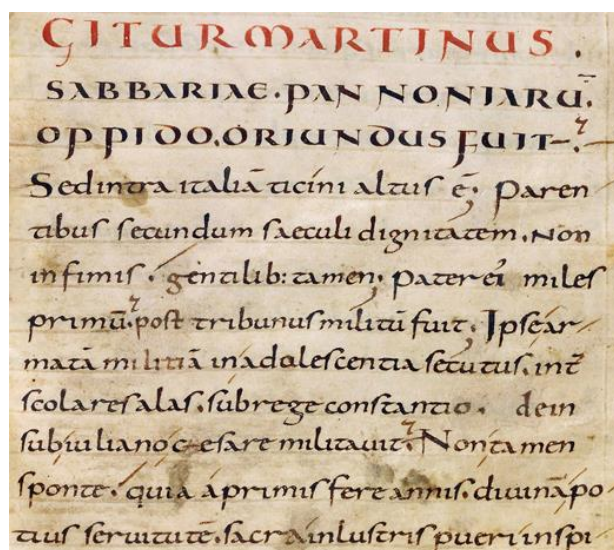 GITUR MARTINUS.
SABBARIAE. PANNONIARŪ.
OPPIDO. ORIUNDUS FUIT.
Sed intra italiā ticini altus ē; Paren
tibus secundum saeculi dignitatem. Non
infimis. gentilib: tamen; Pater ei miles
primū. post tribunus militū fuit; Ipse ar
matā militiā in adolescentia secutus. int
scolares alas. sub rege constantio. dein
sub iuliano cęsare militavit. Non tamen
sponte. quia a primis fere annis. divinā po
tius servitutē. sacra inlustris pueri inspi